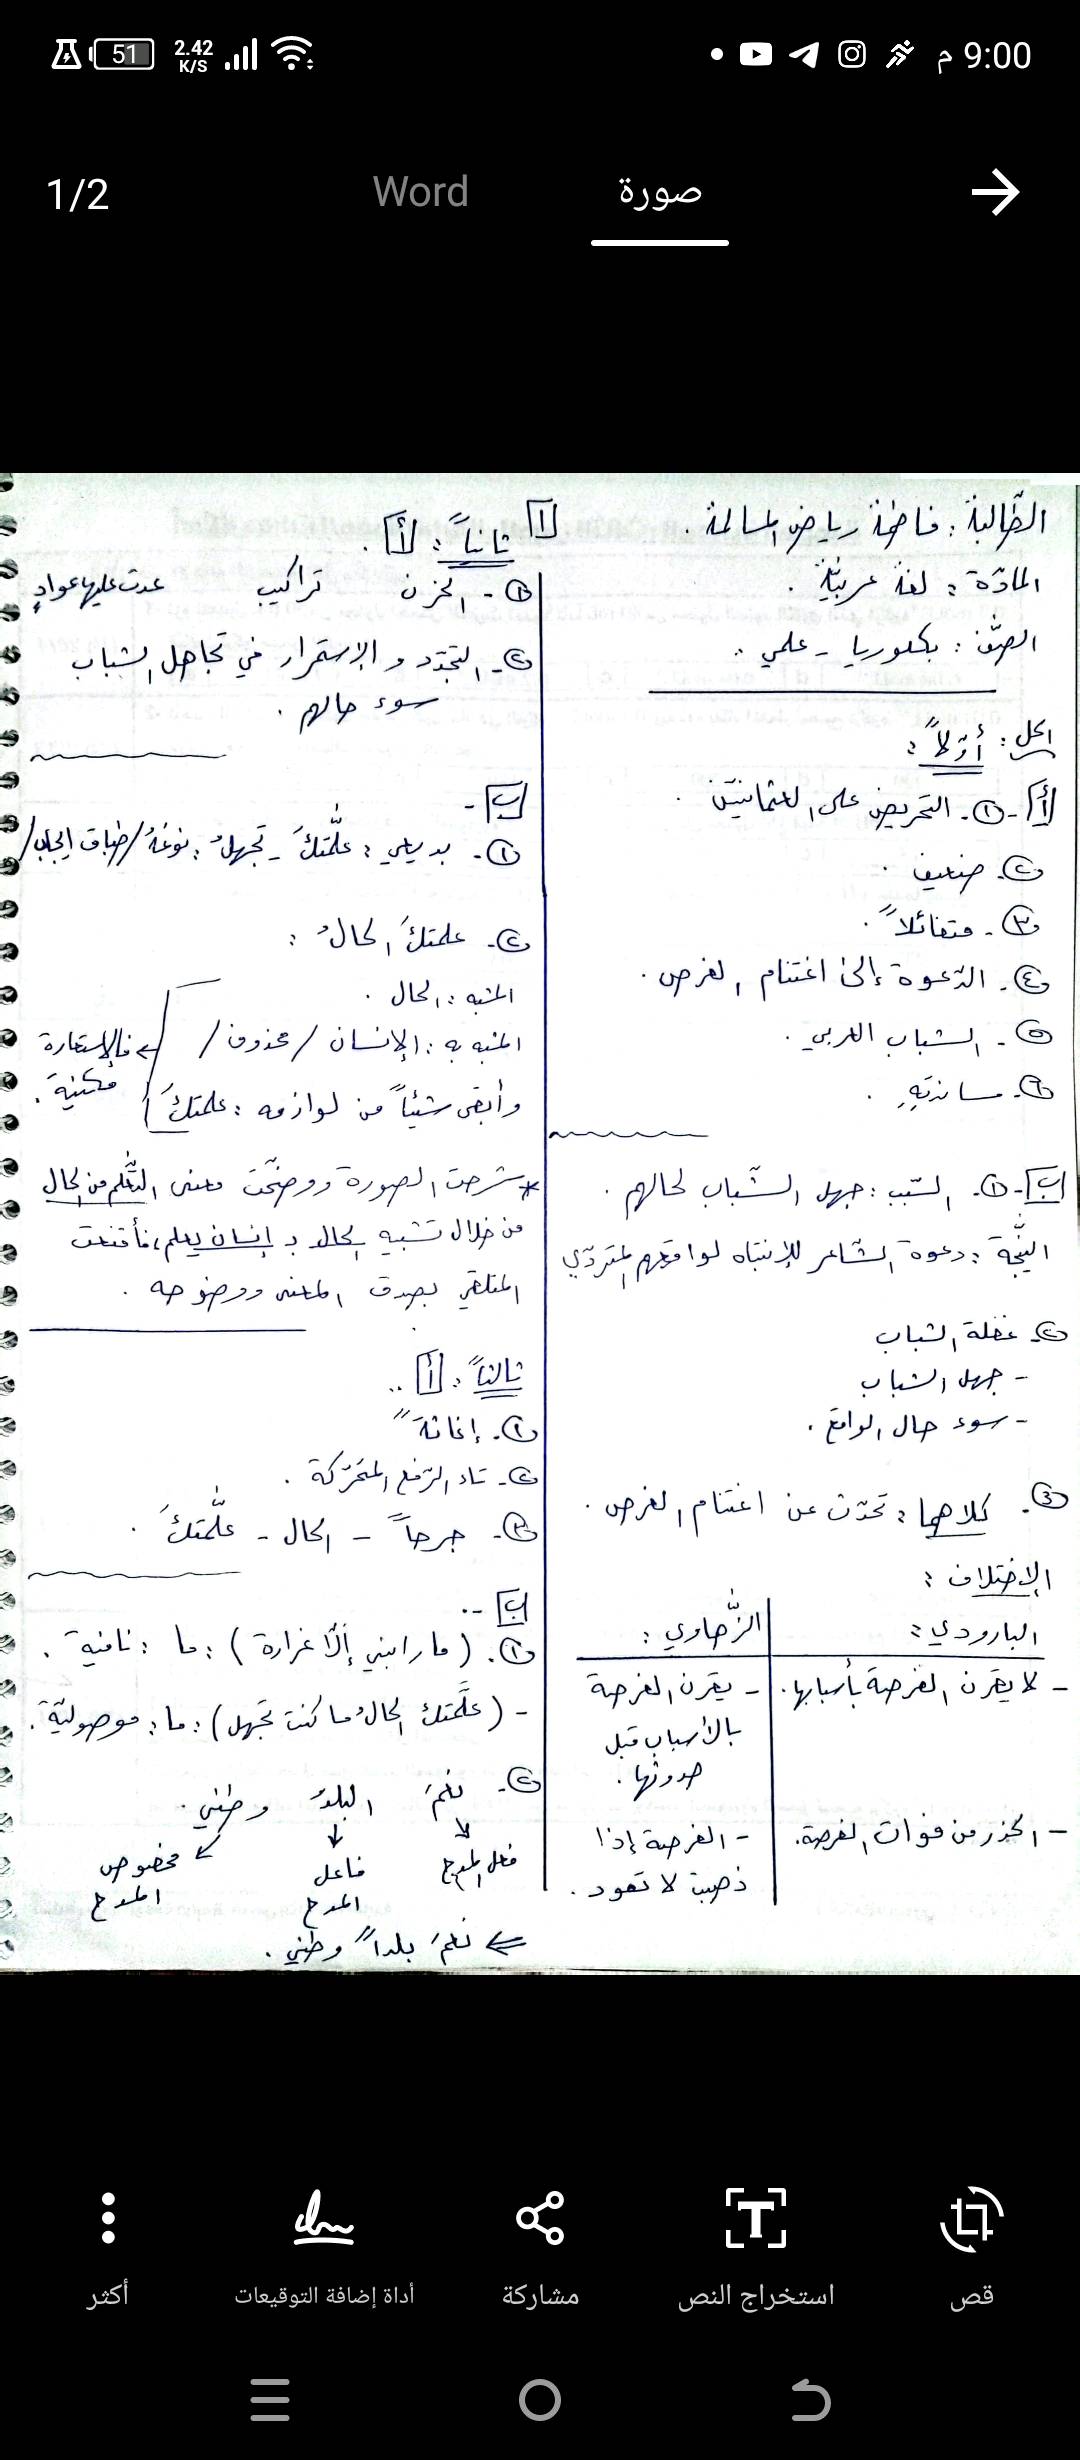 51 2.42 K/S 9:00 م
1/2 Word صورة
الطّالبة: فاطمة رياض المسالمة.
المادّة: لغة عربيّة.
الصّف: بكلوريا - علمي.
الحل: أوّلاً:
أ - ١- التحريض على العثمانيّين.
٢- ضعيف.
٣- متفائلاً.
٤- الدّعوة إلى اغتنام الفرص.
٥- الشباب العربي.
٦- ساندته.
ب - ١- السّبب: جهل الشّباب لحالهم.
النتيجة: دعوة الشّاعر للإنتباه لواقعهم المتردّي
٢- غفلة الشباب
- جهل الشباب
- سوء حال الواقع.
3. كلاهما: تحدّث عن اغتنام الفرص.
الإختلاف:
البارودي: الزّهاوي:
- لا يقرن الفرصة بأسبابها. - يقرن الفرصة
بالأسباب قبل
حدوثها.
- الحذر من فوات الفرصة. - الفرصة إذا
ذهبت لا تعود.
1
ثانياً: أ.
١- الحزن تراكيب عدت عليها عوادٍ
٢- التجدّد والإستمرار في تجاهل الشباب
سوء حالهم.
ب -
١- بديعي: علّمتكَ - تجهلُ: نوعهُ / طباق إيجاب /
٢- علمتكَ الحالُ:
المشبه: الحال.
المشبه به: الإنسان / محذوف /
وأبقى شيئاً من لوازمه: علمتكَ
فالإستعارة
مكنية.
* شرحت الصورة ووضّحت معنى التّعلم من الحال
من خلال تشبيه الحال بـ إنسان يعلم، فأقنعت
المتلقي بصدق المعنى ووضوحه.
ثالثاً: أ..
١- إغاثةً
٢- تاء الرّفع المتحرّكة.
٣- جرحاً - الحال - علّمتكَ.
ب -..
١. (ما رابني إلّا غرارة): ما: نافية.
- (علّمتك الحالُ ما كنت تجهل): ما: موصوليّة.
٢- نعمَ البلدُ وطني.
فعل المدح فاعل المدح مخصوص المدح
⇐ نعمَ بلداً وطني.
قص استخراج النص مشاركة أداة إضافة التوقيعات أكثر